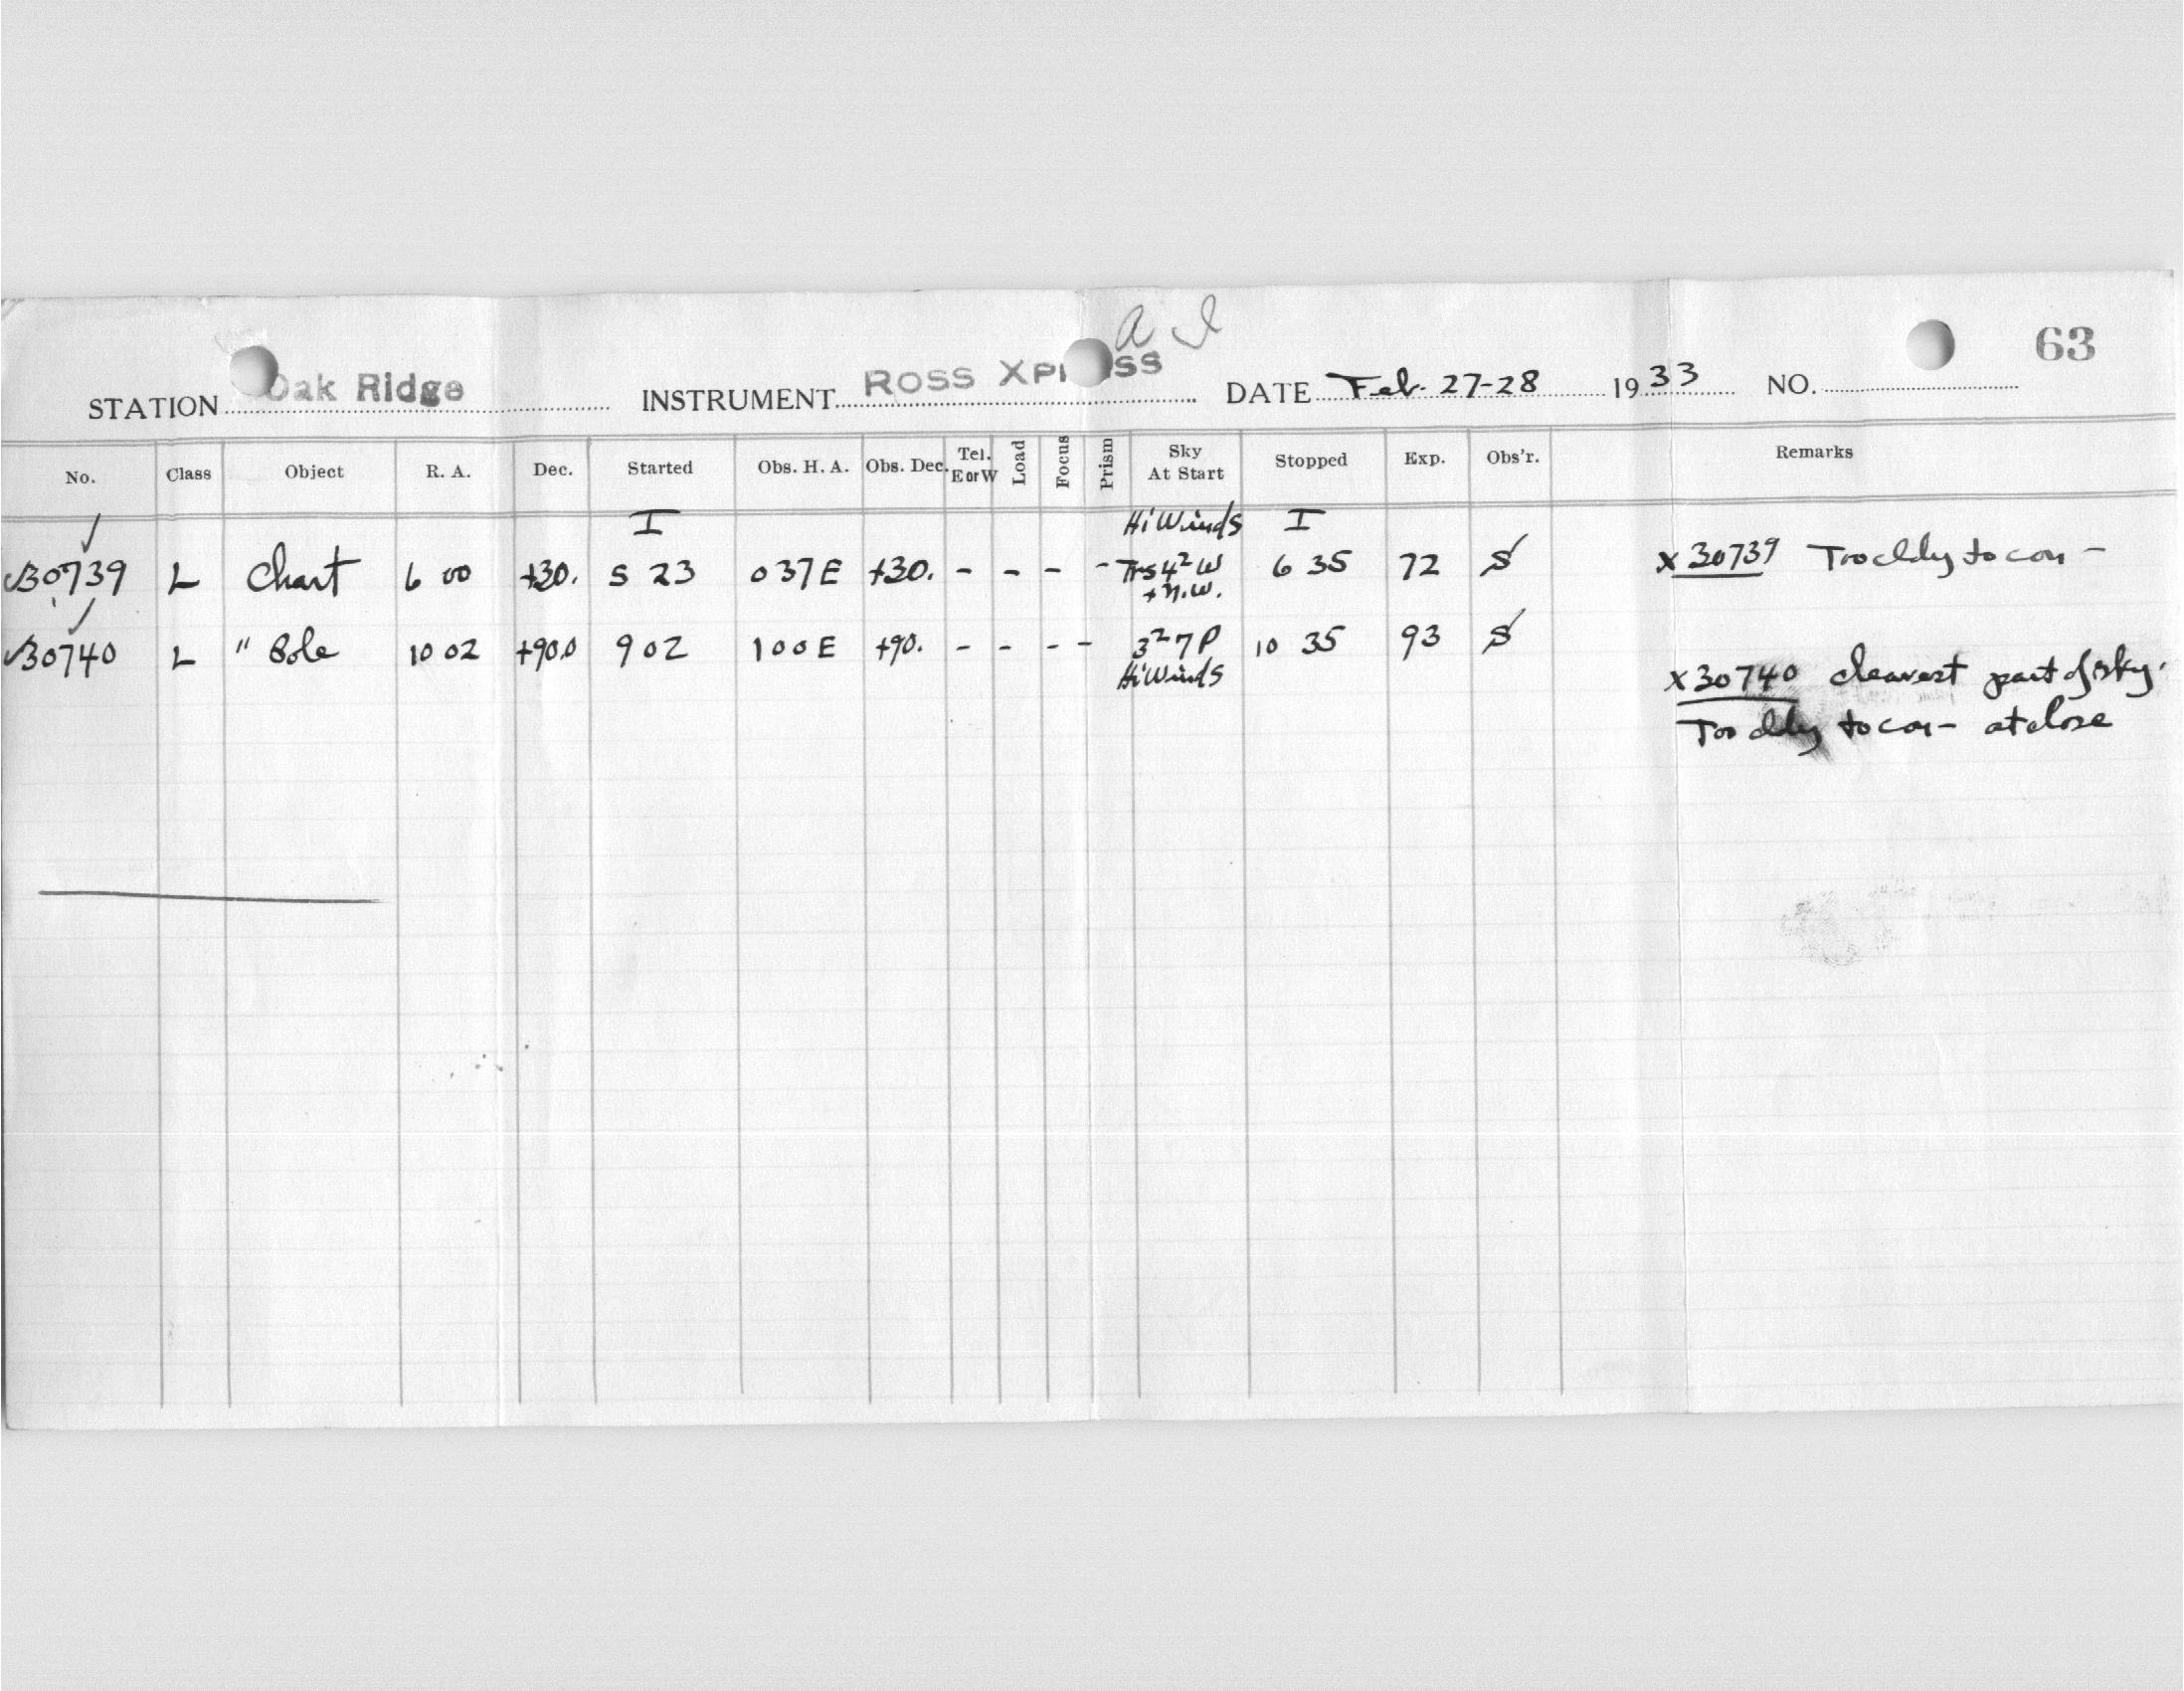 a I
63
STATION Oak Ridge INSTRUMENT ROSS Xpress DATE Feb. 27-28 1933 NO.
No. Class Object R. A. Dec. Started Obs. H. A. Obs. Dec. Tel. E or W Load Focus Prism Sky At Start Stopped Exp. Obs'r. Remarks
I Hi Winds I
30739 L Chart 6 00 +30. 5 23 0 37 E +30. - - - - 4² W 6 35 72 S x 30739 Too cldy to con -
+ N.W.
30740 L " Pole 10 02 +90.0 9 02 1 00 E +90. - - - - 3² 7 P 10 35 93 S
Hi Winds x 30740 clearest part of sky.
Too cldy to con - at close